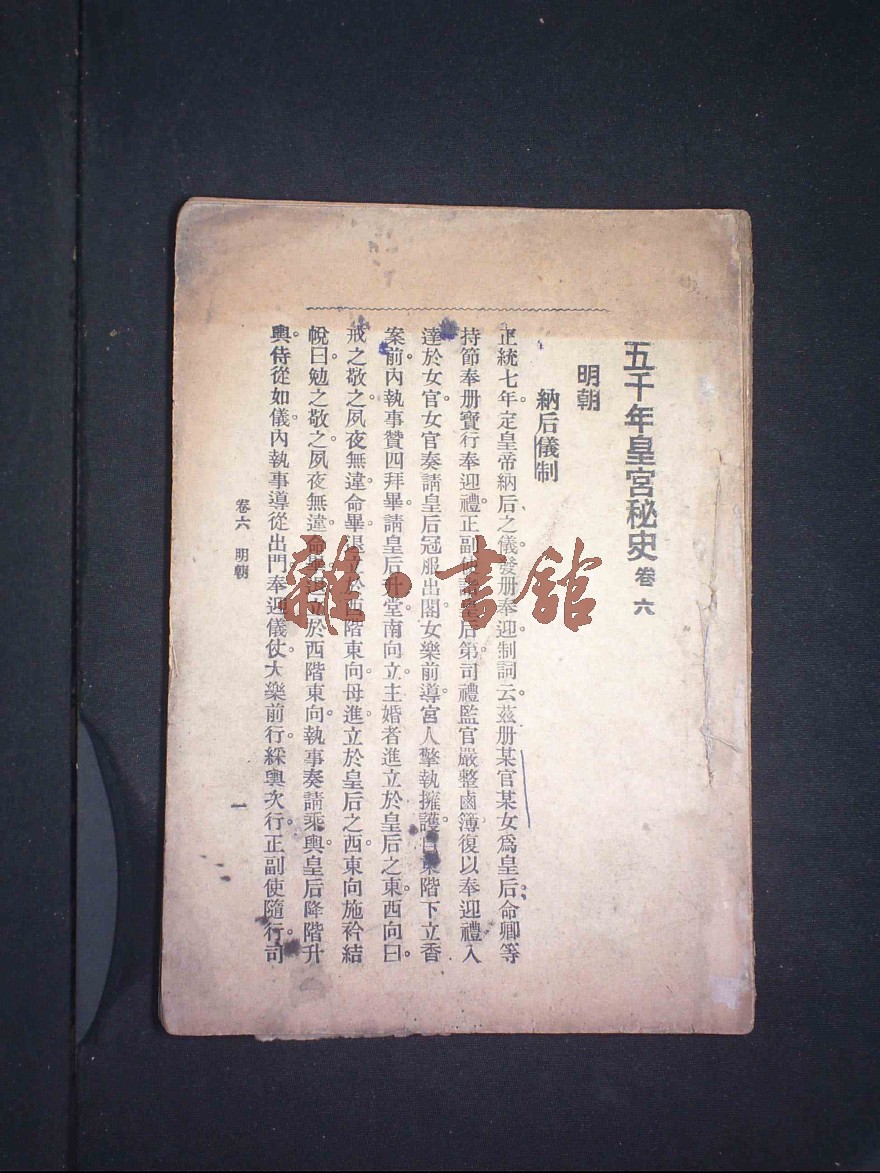 五千年皇宮秘史 卷六
明朝
納后儀制
正統七年定皇帝納后之儀發册奉迎制詞云茲册某官某女爲皇后命卿等
持節奉册寶行奉迎禮正副使詣皇后第。司禮監官嚴整鹵簿復以奉迎禮入
達於女官女官奏請皇后冠服出閣女樂前導宮人擎執擁護自東階下立香
案前內執事贊四拜畢請皇后升堂南向立主婚者進立於皇后之東西向曰
戒之敬之夙夜無違命畢退立於西階東向母進立於皇后之西東向施衿結
帨曰勉之敬之夙夜無違命畢退立於西階東向執事奏請乘輿皇后降階升
輿侍從如儀內執事導從出門奉迎儀仗大樂前行綵輿次行正副使隨行司
卷六 明朝
一
雜·書館